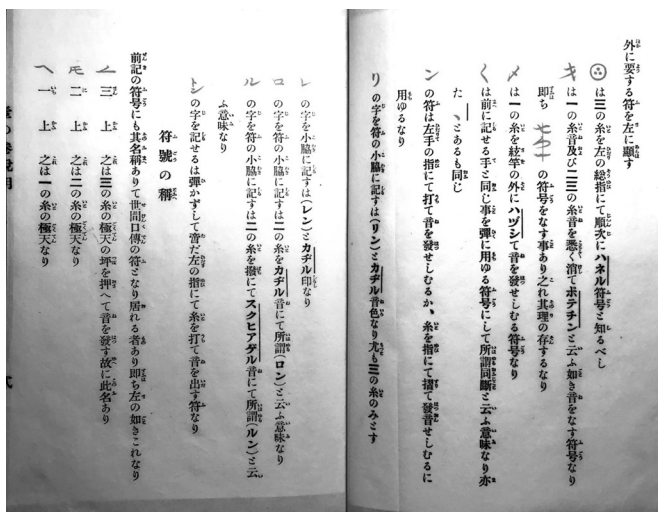 外に要する符を左に顯す
は三の糸を左の総指にて順次にハネル符號と知るべし
キ は一の糸音及び二三の糸音を悉く消てボテチンと云ふ如き音をなす符號なり
即ち の符號をなす事あり之れ其理の存するなり
メ は一の糸を絃竿の外にハヅシて音を發せしむる符號なり
く は前に記せる手と同じ事を彈に用ゆる符號にして所謂同斷と云ふ意味なり亦
た 〵とあるも同じ
ン の符は左手の指にて打て音を發せしむるか、糸を指にて摺て發音せしむるに
用ゆるなり
リ の字を符の小脇に記すは(リン)とカヂル音色なり尤も三の糸のみとす
レ の字を小脇に記すは(レン)とカヂル印なり
ロ の字を符の小脇に記すは二の糸をカヂル音にて所謂(ロン)と云ふ意味なり
ル の字を符の小脇に記すは二の糸を撥にてスクヒアゲル音にて所謂(ルン)と云
ふ意味なり
ト の字を記せるは彈かずして啻だ左の指にて糸を打て音を出す符なり
符號の稱
前記の符號にも其名稱ありて世間口傳の符となり居れる者あり即ち左の如きこれなり
三上 之は三の糸の極天の坪を押へて音を發す故に此名あり
二上 之は二の糸の極天なり
一上 之は一の糸の極天なり